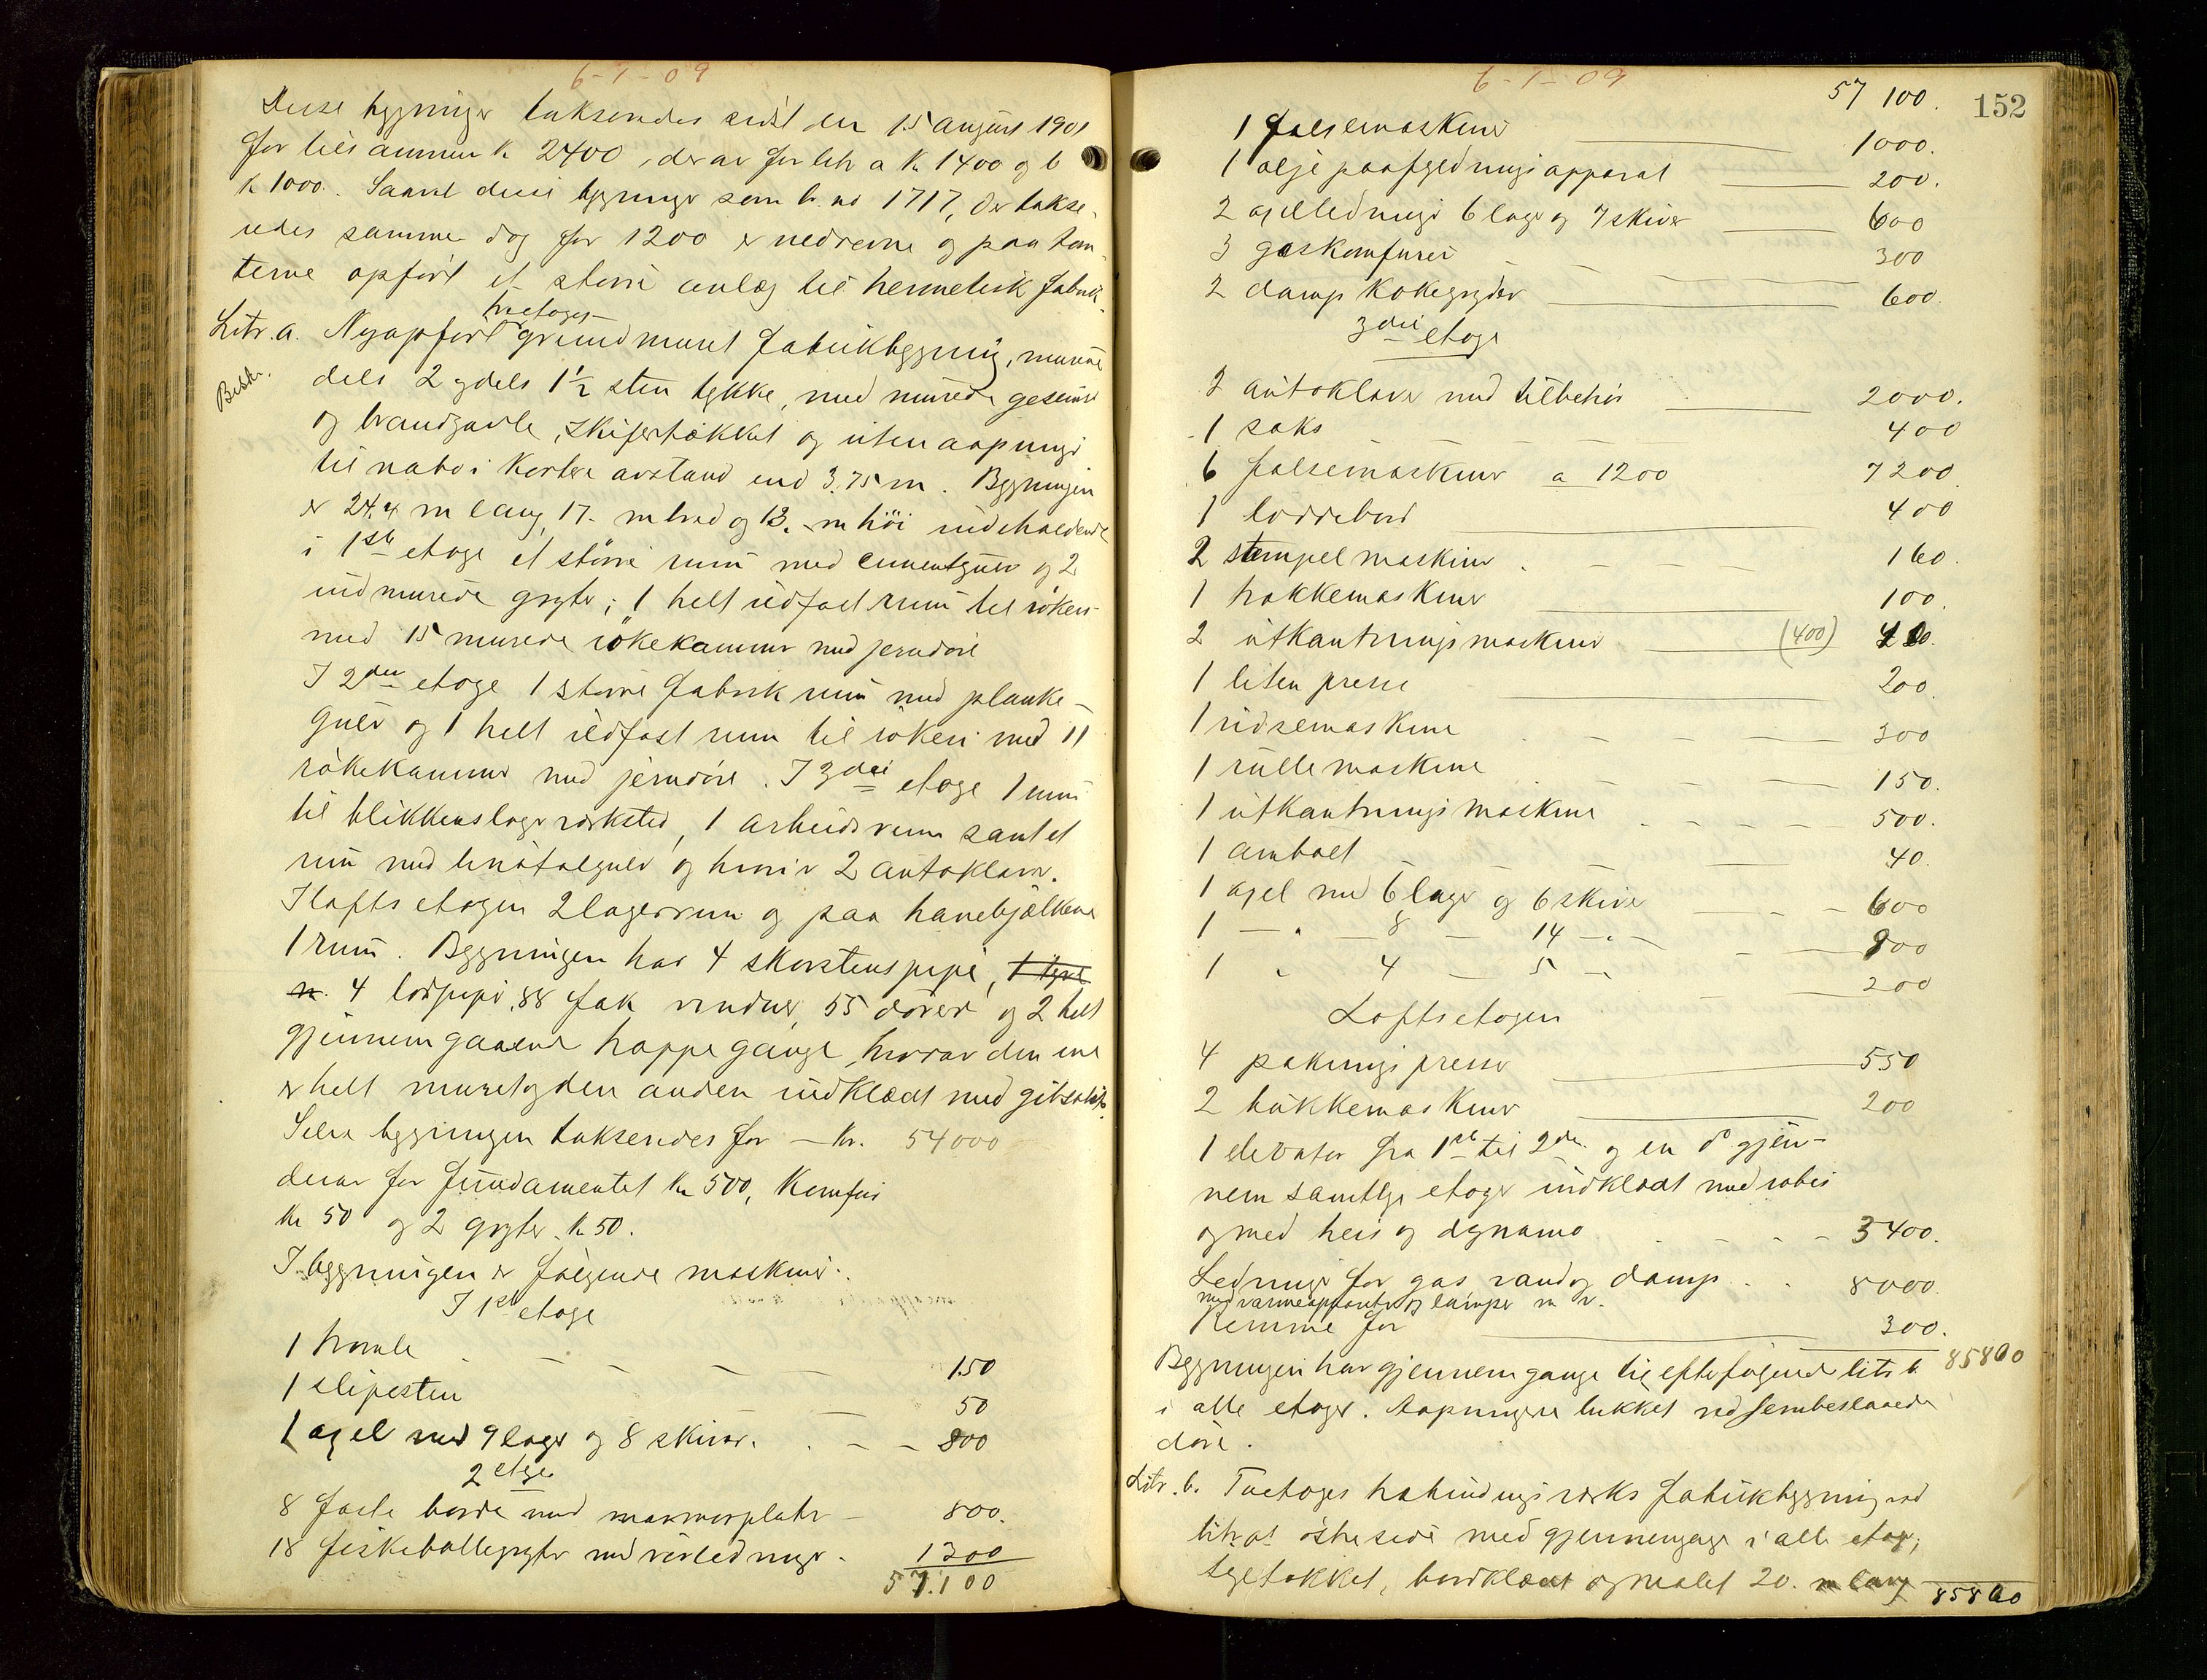 6-7-09
Disse bygninger taksertes sidst den 15 august 1901
for tilsammen k 2400, derav for litr a K 1400 og b
k 1000. Saavel disse bygninger som br. no 1717, der takse-
redes samme dag for 1200 er nedrevne og paa tom-
terne opført et større anlæg til hermetisk fabrik.
treetages
Litr. a. Nyopført grundmuret fabrikbygning, murene
Beskr.
dels 2 og dels 1½ sten tykke, med murede gesimse
og brandgavle, skifertækket og uten aapninger
til nabo i kortere avstand end 3.75 m. Bygningen
er 24,4 m lang, 17. m bred og 13. m høi indeholdende
i 1ste etage et større rum med cementgulv og 2
indmurede gryter; 1 helt ildfast rum til røkeri
med 15 murede røkekammer med jerndøre
I 2den etage 1 større fabrikrum med planke-
gulv og 1 helt ildfast rum til røkeri med 11
røkekammer med jerndøre. I 3die etage 1 rum
til blikkenslagerverksted, 1 arbeidsrum samt et
rum med gulv og hvori 2 autoklaver.
I loftsetagen 2 lagerrum og paa hanebjælkene
1 rum. Bygningen har 4 skorstenspiper,
4 lodpiper, 88 fak vinduer, 55 dører og 2 helt
gjennemgaaende trappegange, hvorav den ene
er helt muret og den anden indklædt med gibsplater.
Selve bygningen taksertes for — Kr. 54000
derav for fundamentet Kr 500, Komfur
Kr 50 og 2 gryter Kr 50.
I bygningen er følgende maskiner.
I 1ste etage
1 tromle - - - 150
1 slipesten — 50
1 axel med 9 lager og 8 skiver. - - 800
2 etage
8 faste borde med marmorplater — 800.
18 fiskebollegryter med rørledninger - 1300
57.100
6-7-09
152
57 100.
1 falsemaskine — 1000.
1 olje paafyldningsapparat — 200.
2 axelledninger 6 lager og 7 skiver — 600
3 gaskomfurer - - - 300
2 damp kokegryder — 600.
3die etage
2 autoklaver med tilbehør — 2000.
1 saks - - - 400
6 falsemaskiner a 1200 7200.
1 loddebord — 400
2 stempelmaskiner - - - 160.
1 hakkemaskine — 100.
2 utkantningsmaskiner — (400)
1 liten presse — 200.
1 ridsemaskine - - - 300
1 rullemaskine - - - 150.
1 utkantningsmaskine - - - 500.
1 ambolt - - - 40.
1 axel med 6 lager og 6 skiver - - 600
1 — " — 8 — 14 — " — 800
1 " 4 — 5 — 200
Loftsetagen
4 pakningspresser — 550
2 bukkemaskiner — 200
1 elevator fra 1ste til 2den og en do gjen-
nem samtlige etager indklædt med rabis
og med heis og dynamo - - - 3400.
Ledninger for gas vand og damp - - 8000.
med varmeapparater og lamper m. v.
Remme for — 300.
85800
Bygningen har gjennemgange til efterfølgende litr b
i alle etager. Aapningene lukket ved jernbeslaaede
døre.
Litr. b. Toetages utmurings verks fabrikbygning ved
litr. a's østre side med gjennemgange i alle etager,
tegltækket, bordklædt og malet 20. m lang
85800